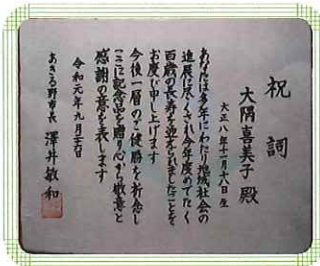 祝詞
大隅喜美子殿
大正八年十一月十八日生
あなたは多年にわたり地域社会の
進展に尽くされ今年度めでたく
百歳の長寿を迎えられましたことを
お慶び申し上げます
今後一層のご健勝を祈念し
ここに記念品を贈り心から敬意と
感謝の意を表します
令和元年九月二十日
あきる野市長 澤井敏和